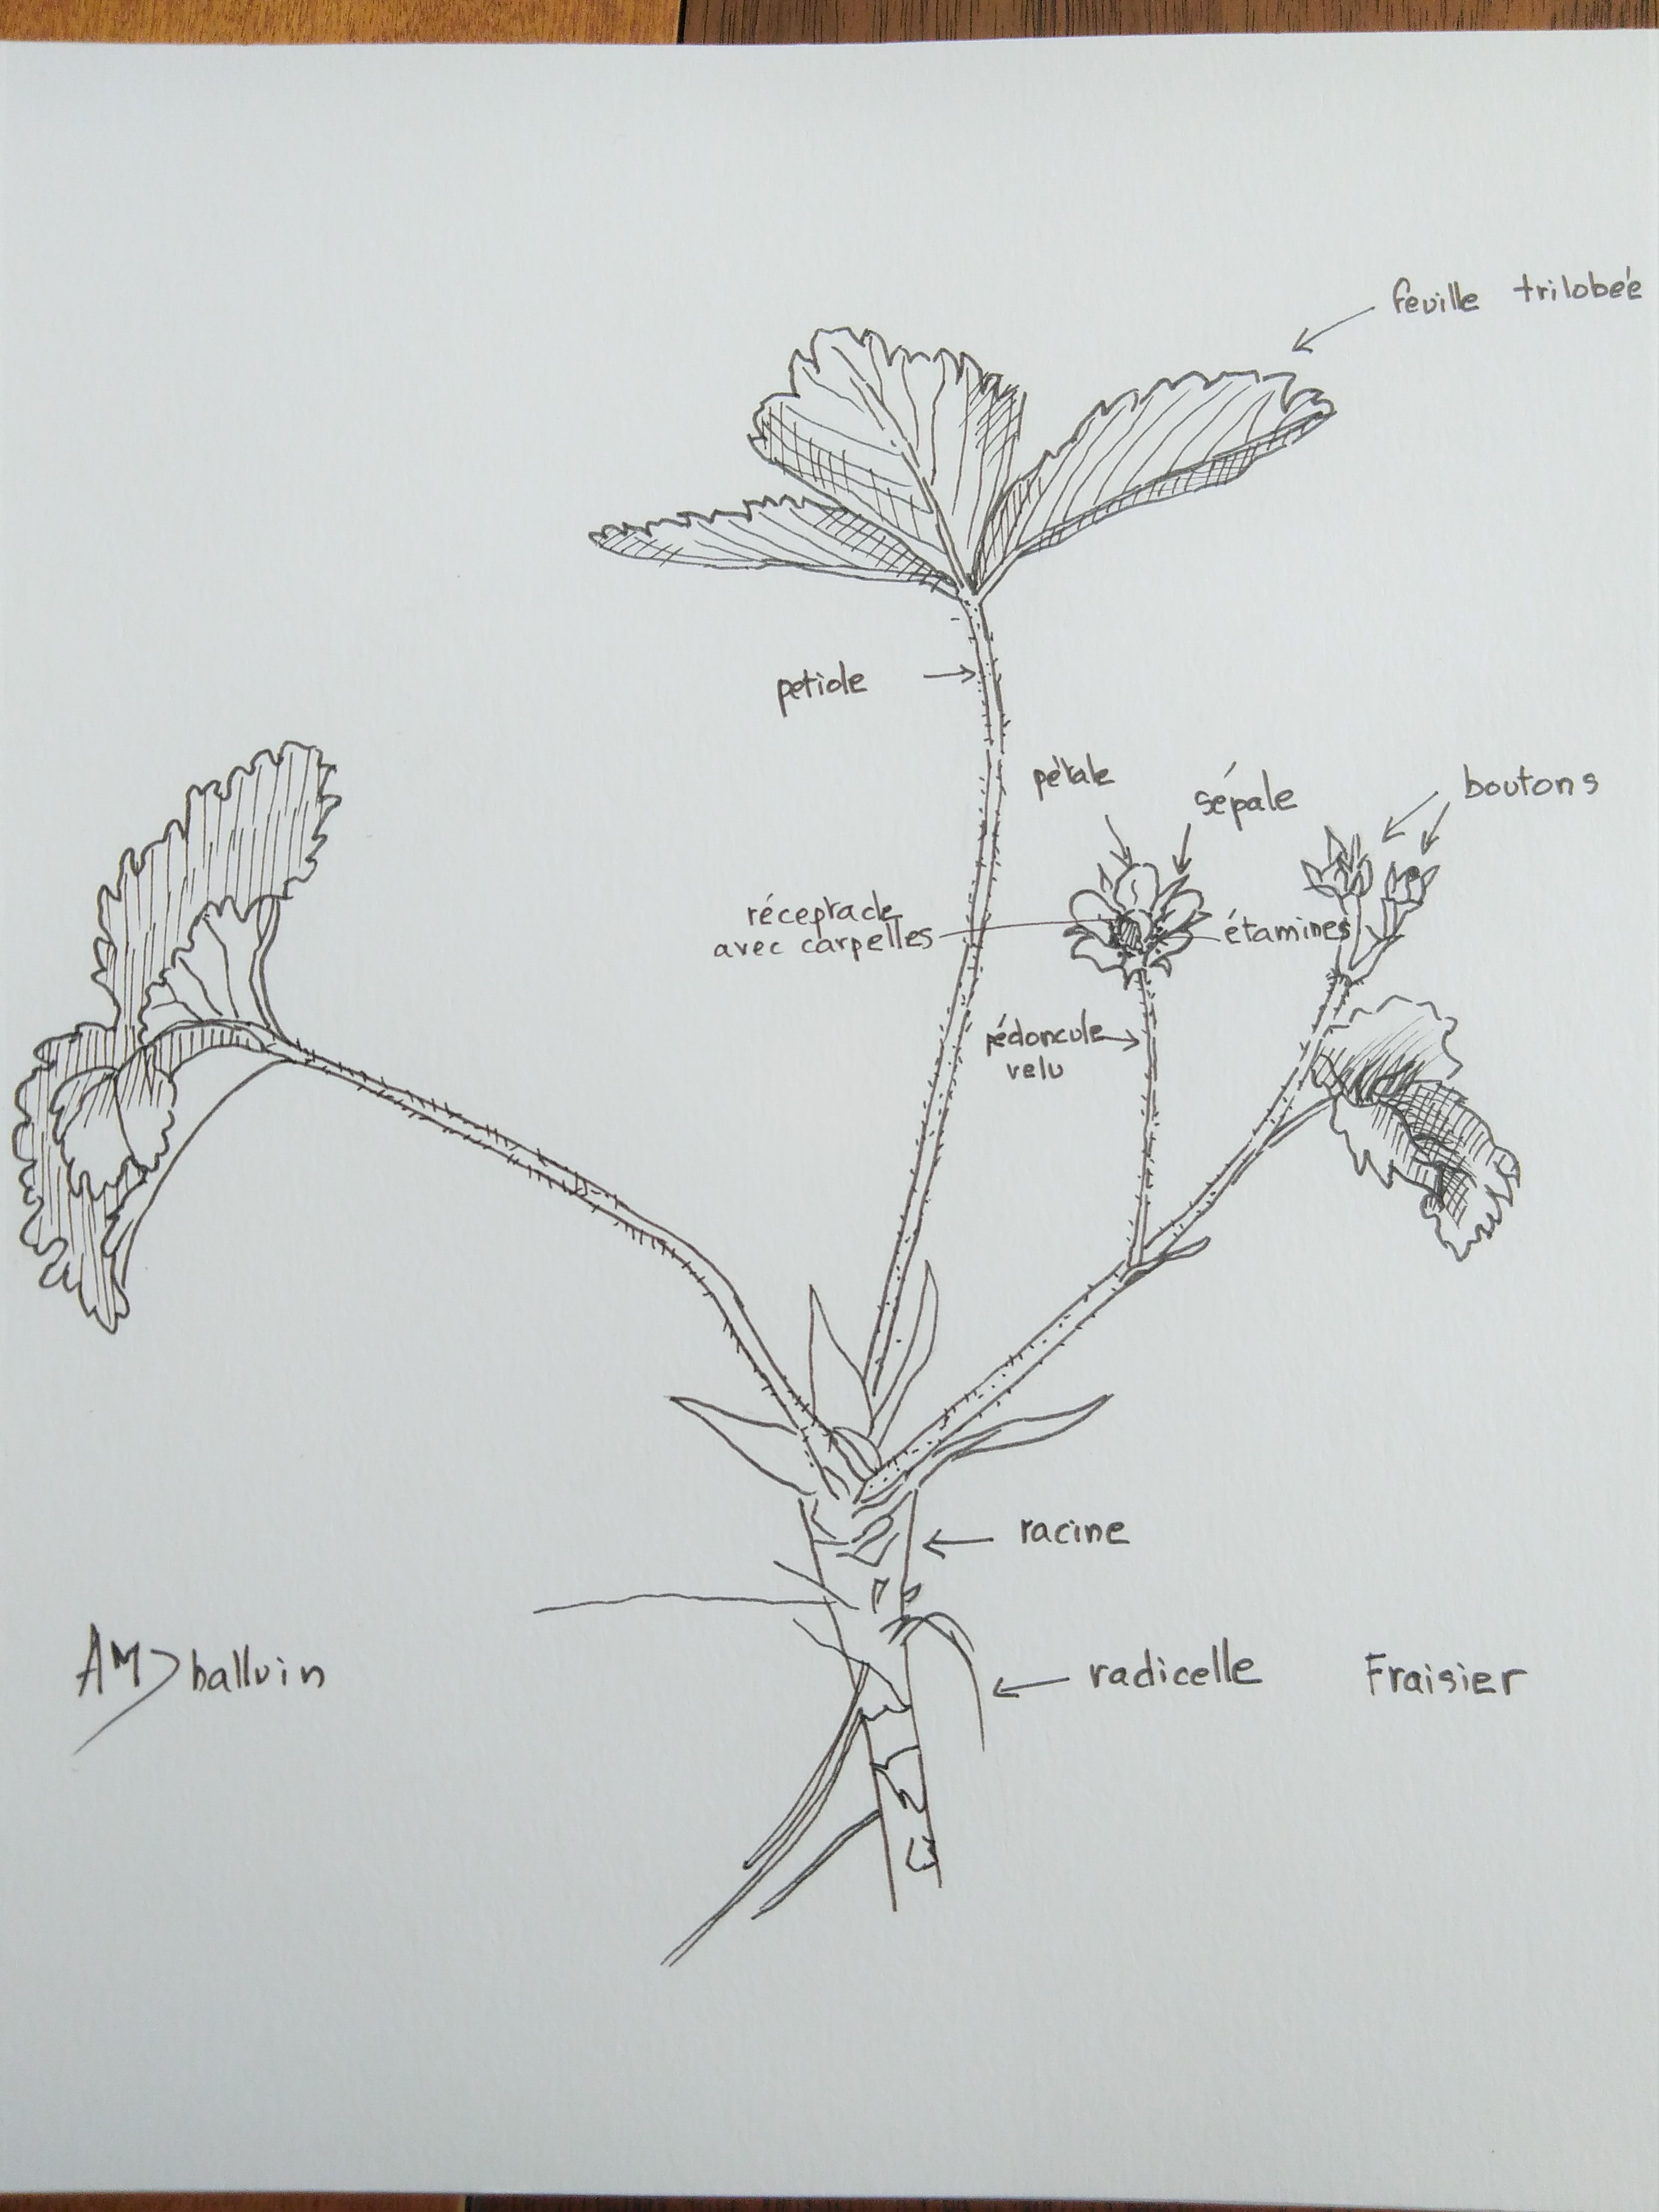 feuille trilobée
petiole
pétale
sépale
boutons
réceptacle
avec carpelles
étamines
pédoncule
velu
racine
radicelle
Fraisier